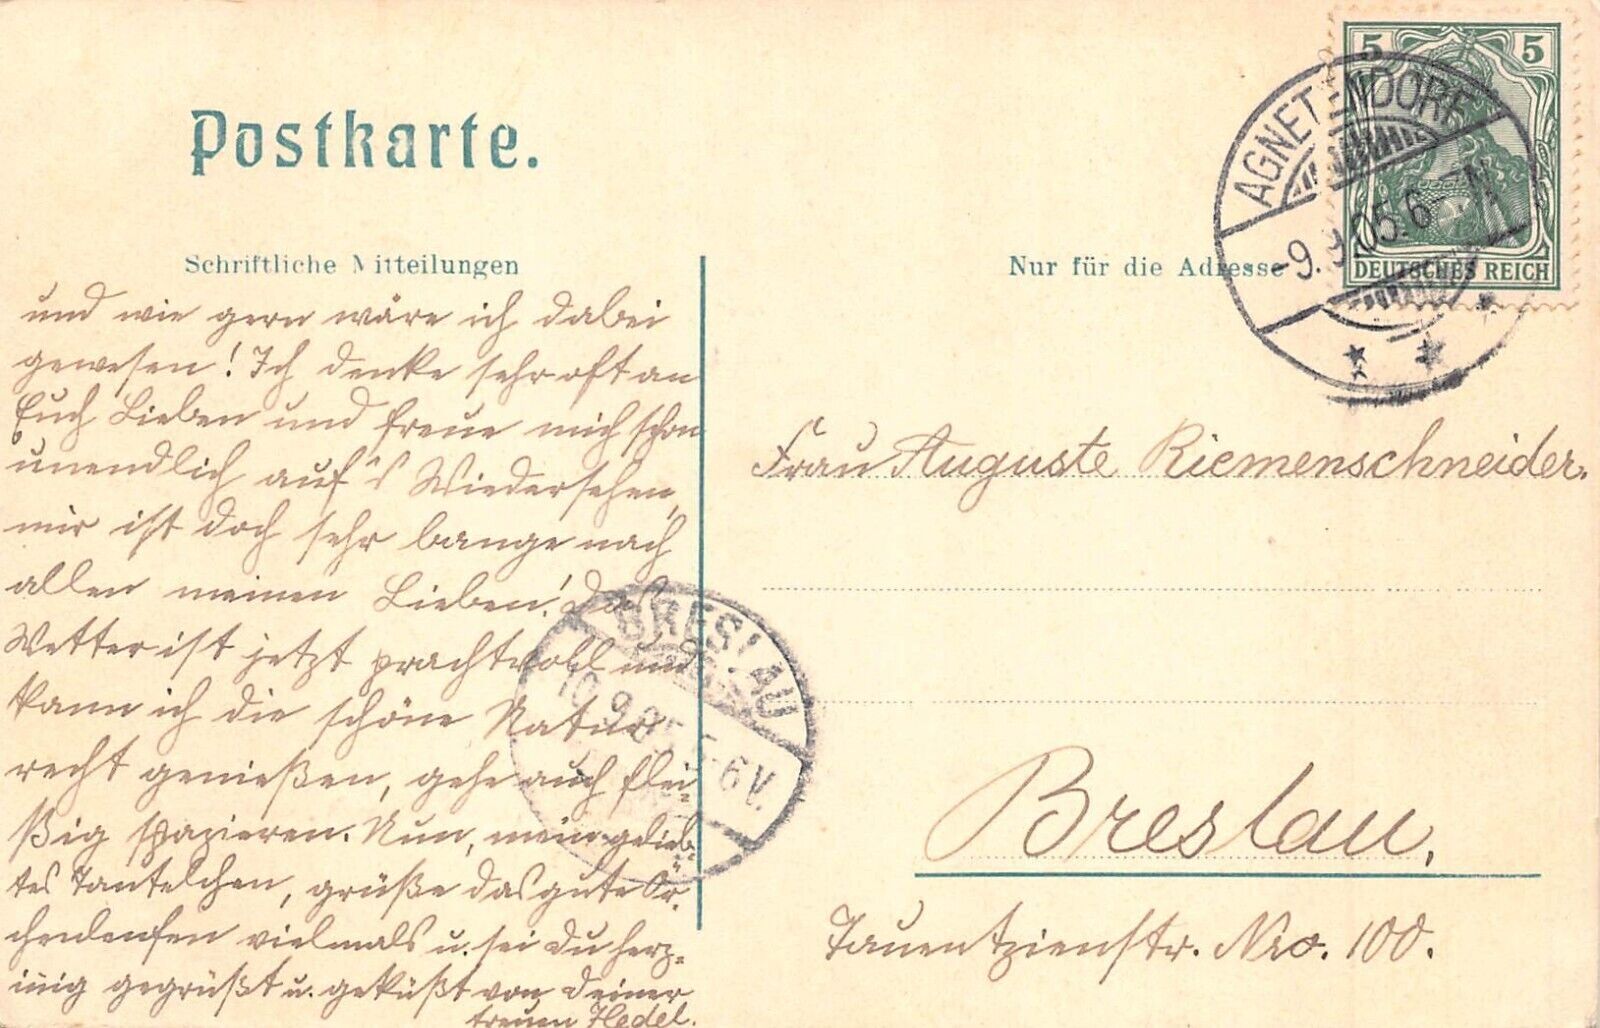 Postkarte.
Schriftliche Mitteilungen
und wie gern wäre ich dabei
gewesen! Ich denke sehr oft an
Euch Lieben und freue mich schon
unendlich auf's Wiedersehen,
mir ist doch sehr bange nach
allen meinen Lieben! Das
Wetter ist jetzt prachtvoll und
kann ich die schöne Natur
recht genießen, gehe auch flei-
ßig spazieren. Nun, mein gelieb-
tes Tantelchen, grüße das gute
vielmals u. sei Du herz-
innig gegrüßt u. geküßt von Deiner
treuen Hedel.
Nur für die Adresse
5 5
DEUTSCHES REICH
AGNETENDORF
-9.9.05.6-7N
Frau Auguste Riemenschneider.
BRESLAU
10.9.05.5-6V.
Breslau,
Tauentzienstr. Nro. 100.